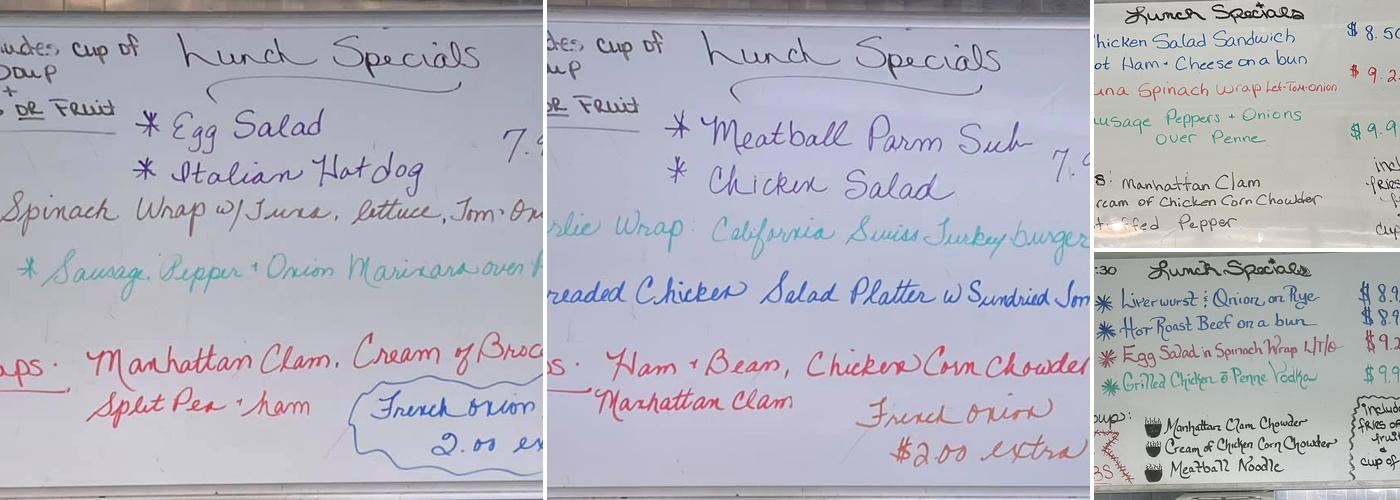 Lunch Specials
cup of
OR Fruit
* Egg Salad
* Italian Hotdog
7.9
Spinach Wrap w/Tuna, lettuce, Tom. On
* Sausage, Pepper + Onion Marinara over
Manhattan Clam, Cream of Broc
Split Pea + ham
French onion
2.00 ex
Lunch Specials
cup of
OR Fruit
* Meatball Parm Sub
* Chicken Salad
7.9
Wrap: California Swiss Turkey burger
Chicken Salad Platter w Sundried Tom
Ham + Bean, Chicken Corn Chowder
Manhattan Clam
French onion
$2.00 extra
Lunch Specials
hicken Salad Sandwich $ 8.50
ot Ham + Cheese on a bun
una Spinach Wrap Let-Tom-onion $ 9.2
usage Peppers + Onions $ 9.9
over Penne
Manhattan Clam
ream of Chicken Corn Chowder
Pepper
incl
fries
cup
:30 Lunch Specials
* Liverwurst & Onion on Rye $ 8.9
* Hot Roast Beef on a bun $ 8.9
* Egg Salad in Spinach Wrap L/T/O $ 9.2
* Grilled Chicken c̄ Penne Vodka $ 9.9
oup:
Manhattan Clam Chowder
Cream of Chicken Corn Chowder
Meatball Noodle
includ
fries or
frui
&
cup of